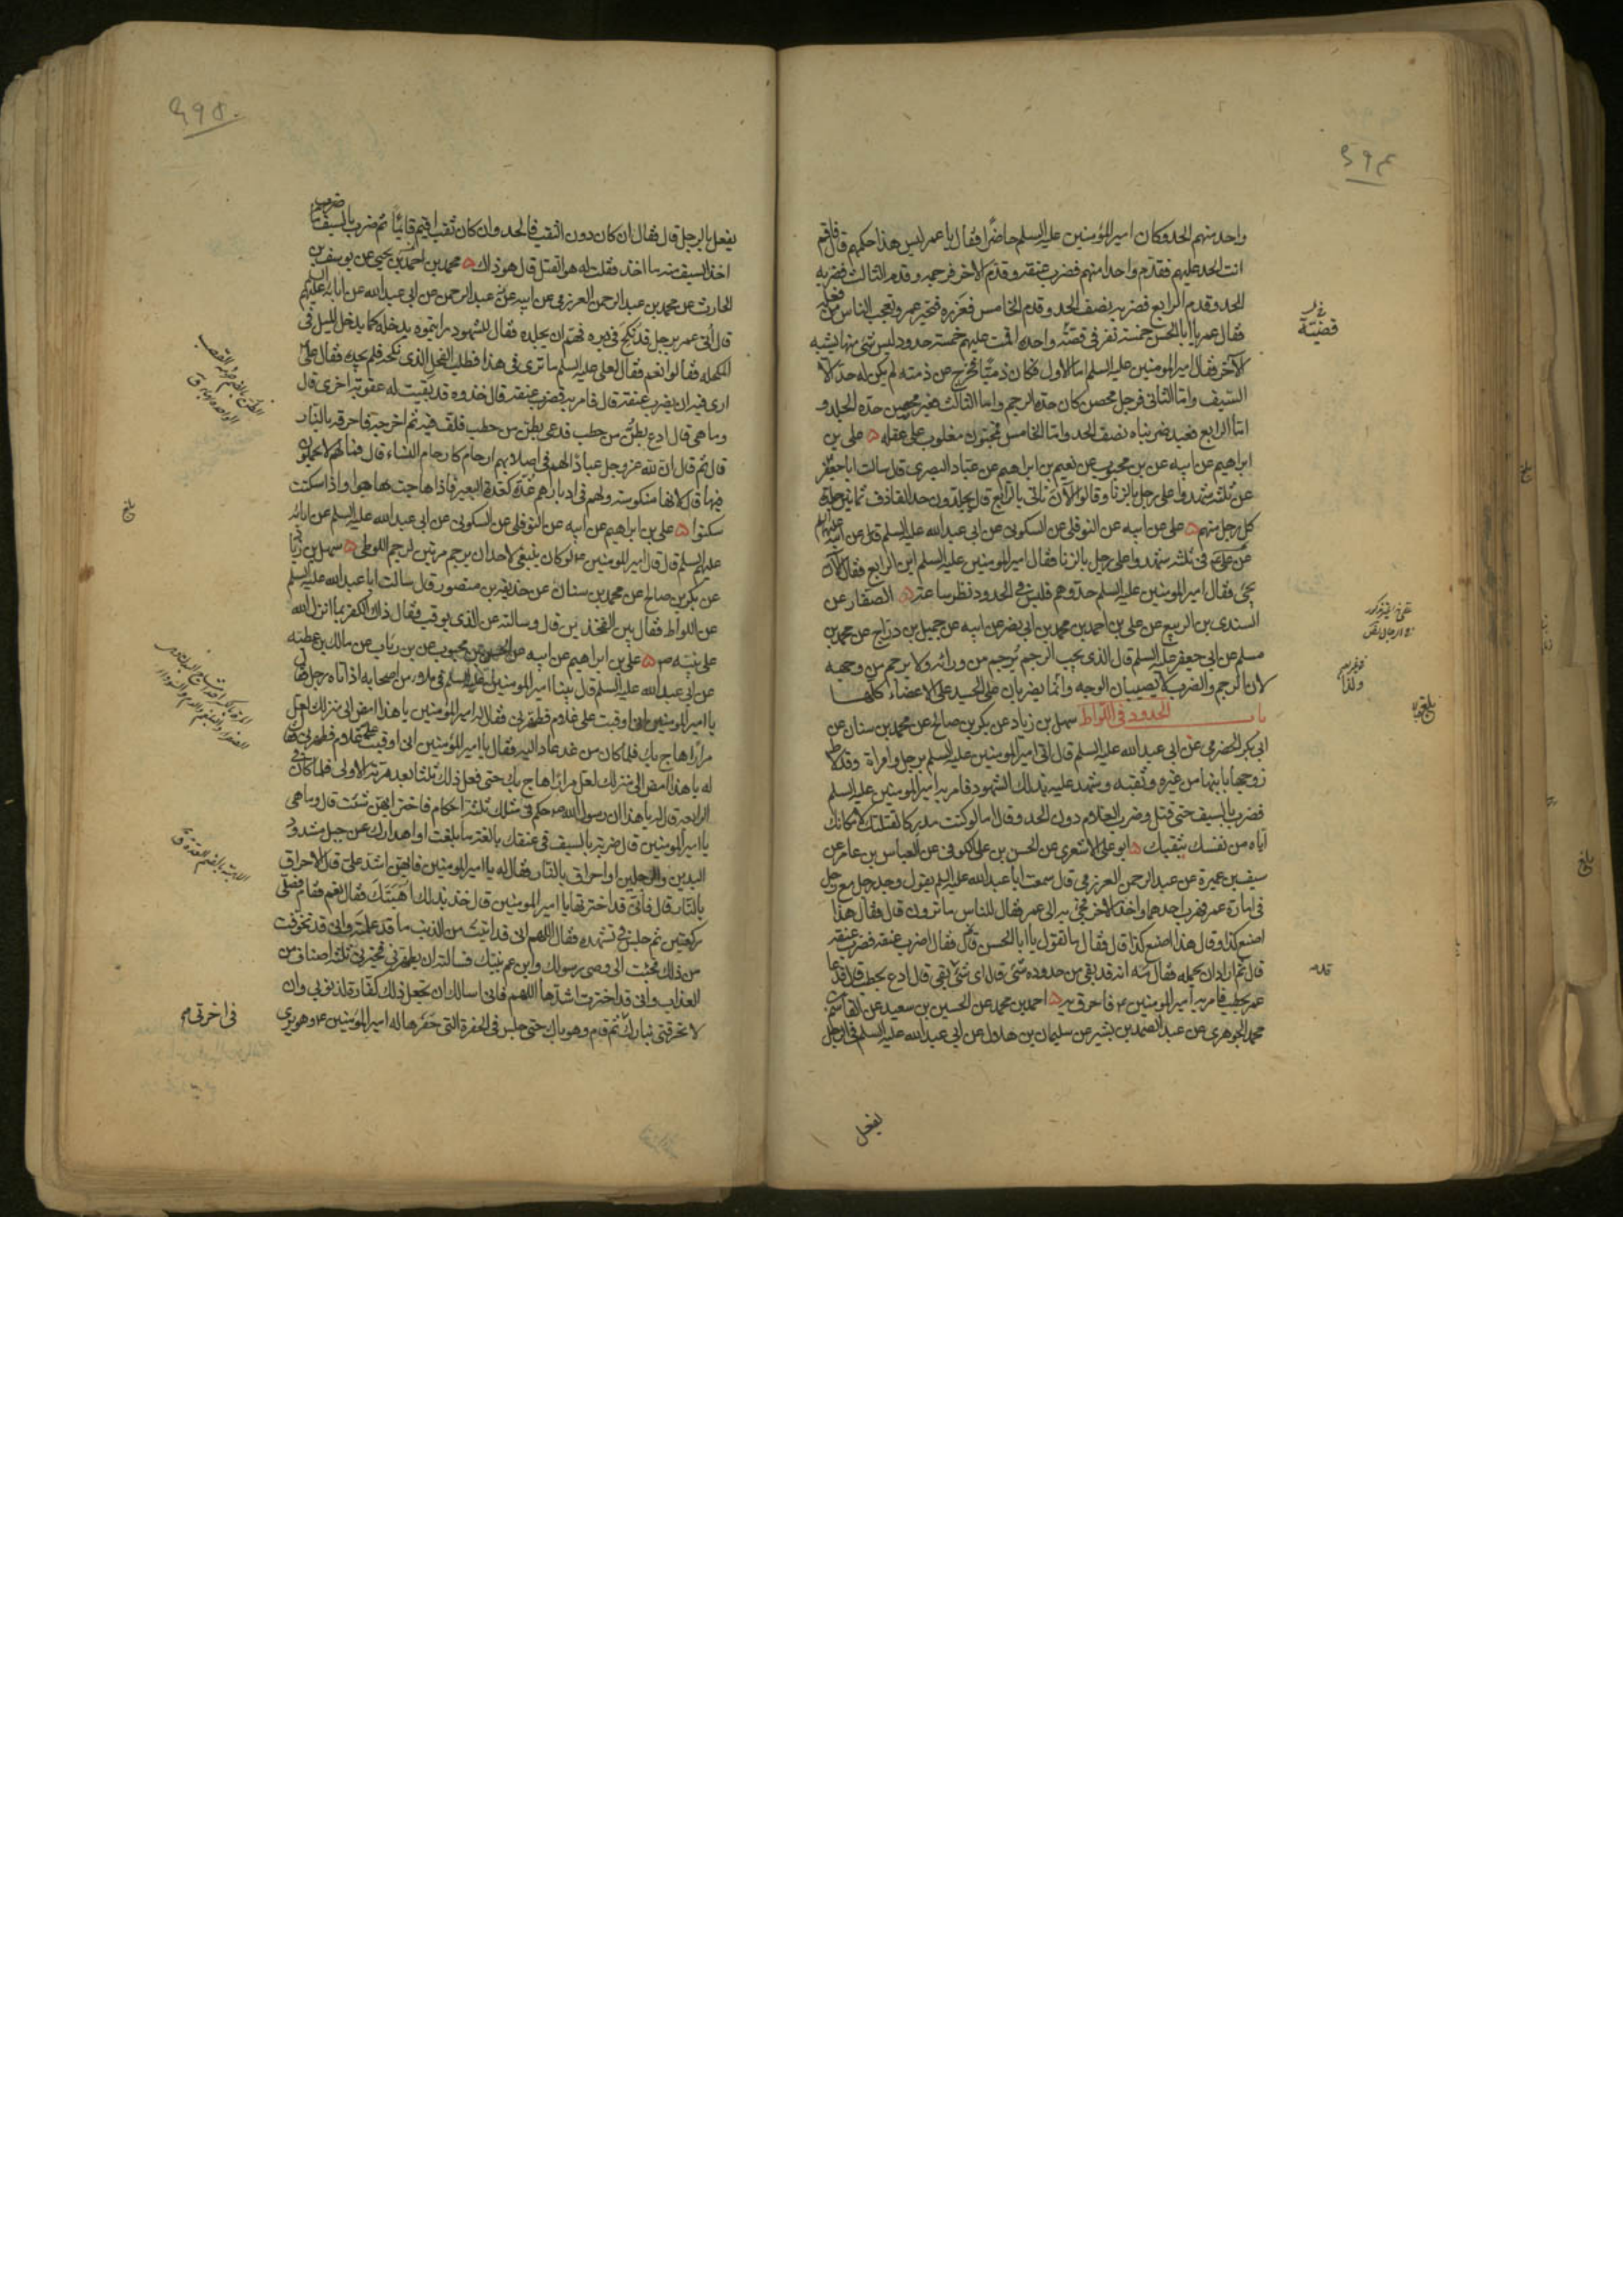 ٥٩٤
واحد منهم الحد وكان امير المؤمنين عليه السلم حاضرا فقال يا عمر ليس هذا حكمهم قال فاقم
انت الحد عليهم فقدم واحدا منهم فضرب عنقه وقدم الاخر فرجمه وقدم الثالث فضربه
الحد وقدم الرابع فضربه نصف الحد وقدم الخامس فعزره فتحير عمر وتعجب الناس من فعله
فقال عمر يا ابا الحسن خمسة نفر في قضية واحدة اقمت عليهم خمسة حدود ليس شئ منها يشبه
الآخر فقال امير المؤمنين عليه السلم اما الاول فكان ذميا فخرج عن ذمته لم يكن له حد الا
السيف واما الثاني فرجل محصن كان حده الرجم واما الثالث فغير محصن حده الجلد و
اما الرابع فعبد ضربناه نصف الحد واما الخامس مجنون مغلوب على عقله ٥ علي بن
ابراهيم عن ابيه عن بن محبوب عن نعيم بن ابراهيم عن عباد البصري قال سالت ابا جعفر
عن ثلثة شهدوا على رجل بالزنا وقالوا الآن نأتي بالرابع قال يجلدون حد القاذف ثمانين جلدة
كل رجل منهم ٥ علي عن ابيه عن النوفلي عن السكوني عن ابي عبد الله عليه السلم عن ابيه
عن علي في ثلثة شهدوا على رجل بالزنا فقال امير المؤمنين عليه السلم اين الرابع فقالوا الآن
يجئ فقال امير المؤمنين عليه السلم حدوهم فليس في الحدود نظر ساعة ٥ الصفار عن
السندي بن الربيع عن علي بن احمد بن محمد بن ابي نصر عن ابيه عن جميل بن دراج عن محمد بن
مسلم عن ابي جعفر عليه السلم قال الذي يجب الرجم يرجم من ورائه ولا يرجم من وجهه
لان الرجم والضرب لا يصيبان الوجه وانما يضربان على الجسد على الاعضاء كلها
باب الحدود في اللواط سهل بن زياد عن بكر بن صالح عن محمد بن سنان عن
ابي بكر الحضرمي عن ابي عبد الله عليه السلم قال اتي امير المؤمنين عليه السلم برجل وامراة وقد لاط
زوجها بابنها من غيره وثقبه وشهد عليه بذلك الشهود فامر به امير المؤمنين عليه السلم
فضرب بالسيف حتى قتل وضرب الغلام دون الحد وقال اما لو كنت مدركا لقتلتك لامكانك
اياه من نفسك بثقبك ٥ ابو علي الاشعري عن الحسن بن علي الكوفي عن العباس بن عامر عن
سيف بن عميرة عن عبد الرحمن العرزمي قال سمعت ابا عبد الله عليه السلم يقول وجد رجل مع رجل
في امارة عمر فهرب احدهما واخذ الاخر فجئ به الى عمر فقال للناس ما ترون قال فقال هذا
اصنع كذا وقال هذا اصنع كذا قال فقال ما تقول يا ابا الحسن قال فقال اضرب عنقه فضرب عنقه
قال ثم اراد ان يحمله فقال مه انه قد بقي من حدوده شئ قال اي شئ بقي قال ادع بحطب قال فدعا
عمر بحطب فامر به امير المؤمنين ع فاحرق به ٥ احمد بن محمد عن الحسين بن سعيد عن القاسم بن
محمد الجوهري عن عبد الصمد بن بشير عن سليمان بن هلال عن ابي عبد الله عليه السلم في الرجل
يفعل
قضية
بلغ
٥٩٥
يفعل بالرجل قال فقال ان كان دون الثقب فالحد وان كان ثقب اقيم قائما ثم ضرب بالسيف ضربة
اخذ السيف منه ما اخذ فقلت له هو القتل قال هو ذاك ٥ محمد بن احمد بن يحيى عن يوسف بن
الحارث عن محمد بن عبد الرحمن العرزمي عن ابيه عن عبد الرحمن عن ابي عبد الله عن ابائه عليهم السلم
قال اتي عمر برجل قد نكح في دبره فهم ان يجلده فقال للشهود رايتموه يدخله كما يدخل الميل في
المكحلة فقالوا نعم فقال لعلي عليه السلم ما ترى في هذا فطلب الفحل الذي نكحه فلم يجده فقال علي
ارى فيه ان يضرب عنقه قال فامر به فضرب عنقه قال خذوه قد بقيت له عقوبة اخرى قال
وما هي قال ادع بطن من حطب فدعى بطن من حطب فلف فيه ثم اخرجه فاحرقه بالنار
قال ثم قال ان لله عز وجل عبادا لهم في اصلابهم ارحام كارحام النساء قال فما لهم لا يحملون
فيها قال لانها منكوسة ولهم في ادبارهم غدة كغدة البعير فاذا هاجت هاجوا واذا سكنت
سكنوا ٥ علي بن ابراهيم عن ابيه عن النوفلي عن السكوني عن ابي عبد الله عليه السلم عن ابائه
عليهم السلم قال قال امير المؤمنين ع لو كان ينبغي لاحد ان يرجم مرتين لرجم اللوطي ٥ سهل بن زياد
عن بكر بن صالح عن محمد بن سنان عن حذيفة بن منصور قال سالت ابا عبد الله عليه السلم
عن اللواط فقال بين الفخذين قال وسالته عن الذي يوقب فقال ذلك الكفر بما انزل الله
على نبيه ص ٥ علي بن ابراهيم عن ابيه عن بن محبوب عن بن رئاب عن مالك بن عطية
عن ابي عبد الله عليه السلم قال بينا امير المؤمنين عليه السلم في ملاء من اصحابه اذ اتاه رجل فقال
يا امير المؤمنين اني اوقبت على غلام فطهرني فقال له امير المؤمنين يا هذا امض الى منزلك لعل
مرارا هاج بك فلما كان من غد عاد اليه فقال يا امير المؤمنين اني اوقبت على غلام فطهرني فقال
له يا هذا امض الى منزلك لعل مرارا هاج بك حتى فعل ذلك ثلثا بعد مرته الاولى فلما كان في
الرابعة قال له يا هذا ان رسول الله ص حكم في مثلك ثلثة احكام فاختر ايهن شئت قال وما هي
يا امير المؤمنين قال ضربة بالسيف في عنقك بالغة ما بلغت او اهدارك عن جبل مشدود
اليدين والرجلين او احراق بالنار فقال له يا امير المؤمنين فايهن اشد علي قال الاحراق
بالنار قال فاني قد اخترتها يا امير المؤمنين قال خذ بذلك اهبتك فقال نعم فقام فصلى
ركعتين ثم جلس في تشهده فقال اللهم اني قد اتيت من الذنب ما قد علمته واني قد تخوفت
من ذلك فجئت الى وصي رسولك وابن عم نبيك فسالته ان يطهرني فخيرني بثلثة اصناف من
العذاب واني قد اخترت اشدها اللهم فاني اسالك ان تجعل ذلك كفارة لذنوبي وان
لا تحرقني بنارك ثم قام وهو باك حتى جلس في الحفرة التي حفرها له امير المؤمنين ع وهو يرى
بلغ
في اخرتي